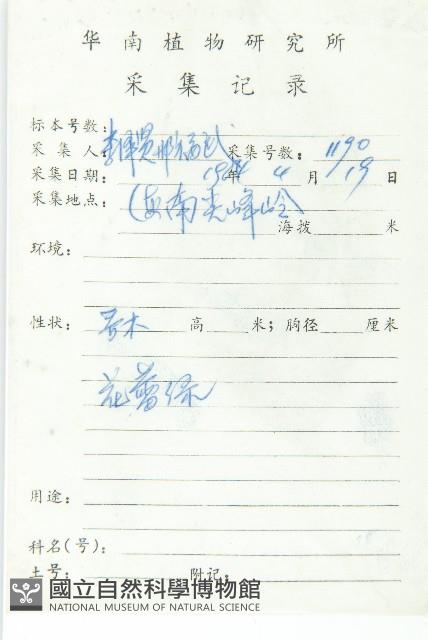 华南植物研究所
采集记录
标本号数：
采集人：李泽贤 邢福武 采集号数：1190
采集日期：1984年4月19日
采集地点：海南尖峰岭
海拨 米
环境：
性状：乔木 高 米；胸径 厘米
花蕾绿
用途：
科名(号)：
土号： 附记：
國立自然科學博物館
NATIONAL MUSEUM OF NATURAL SCIENCE